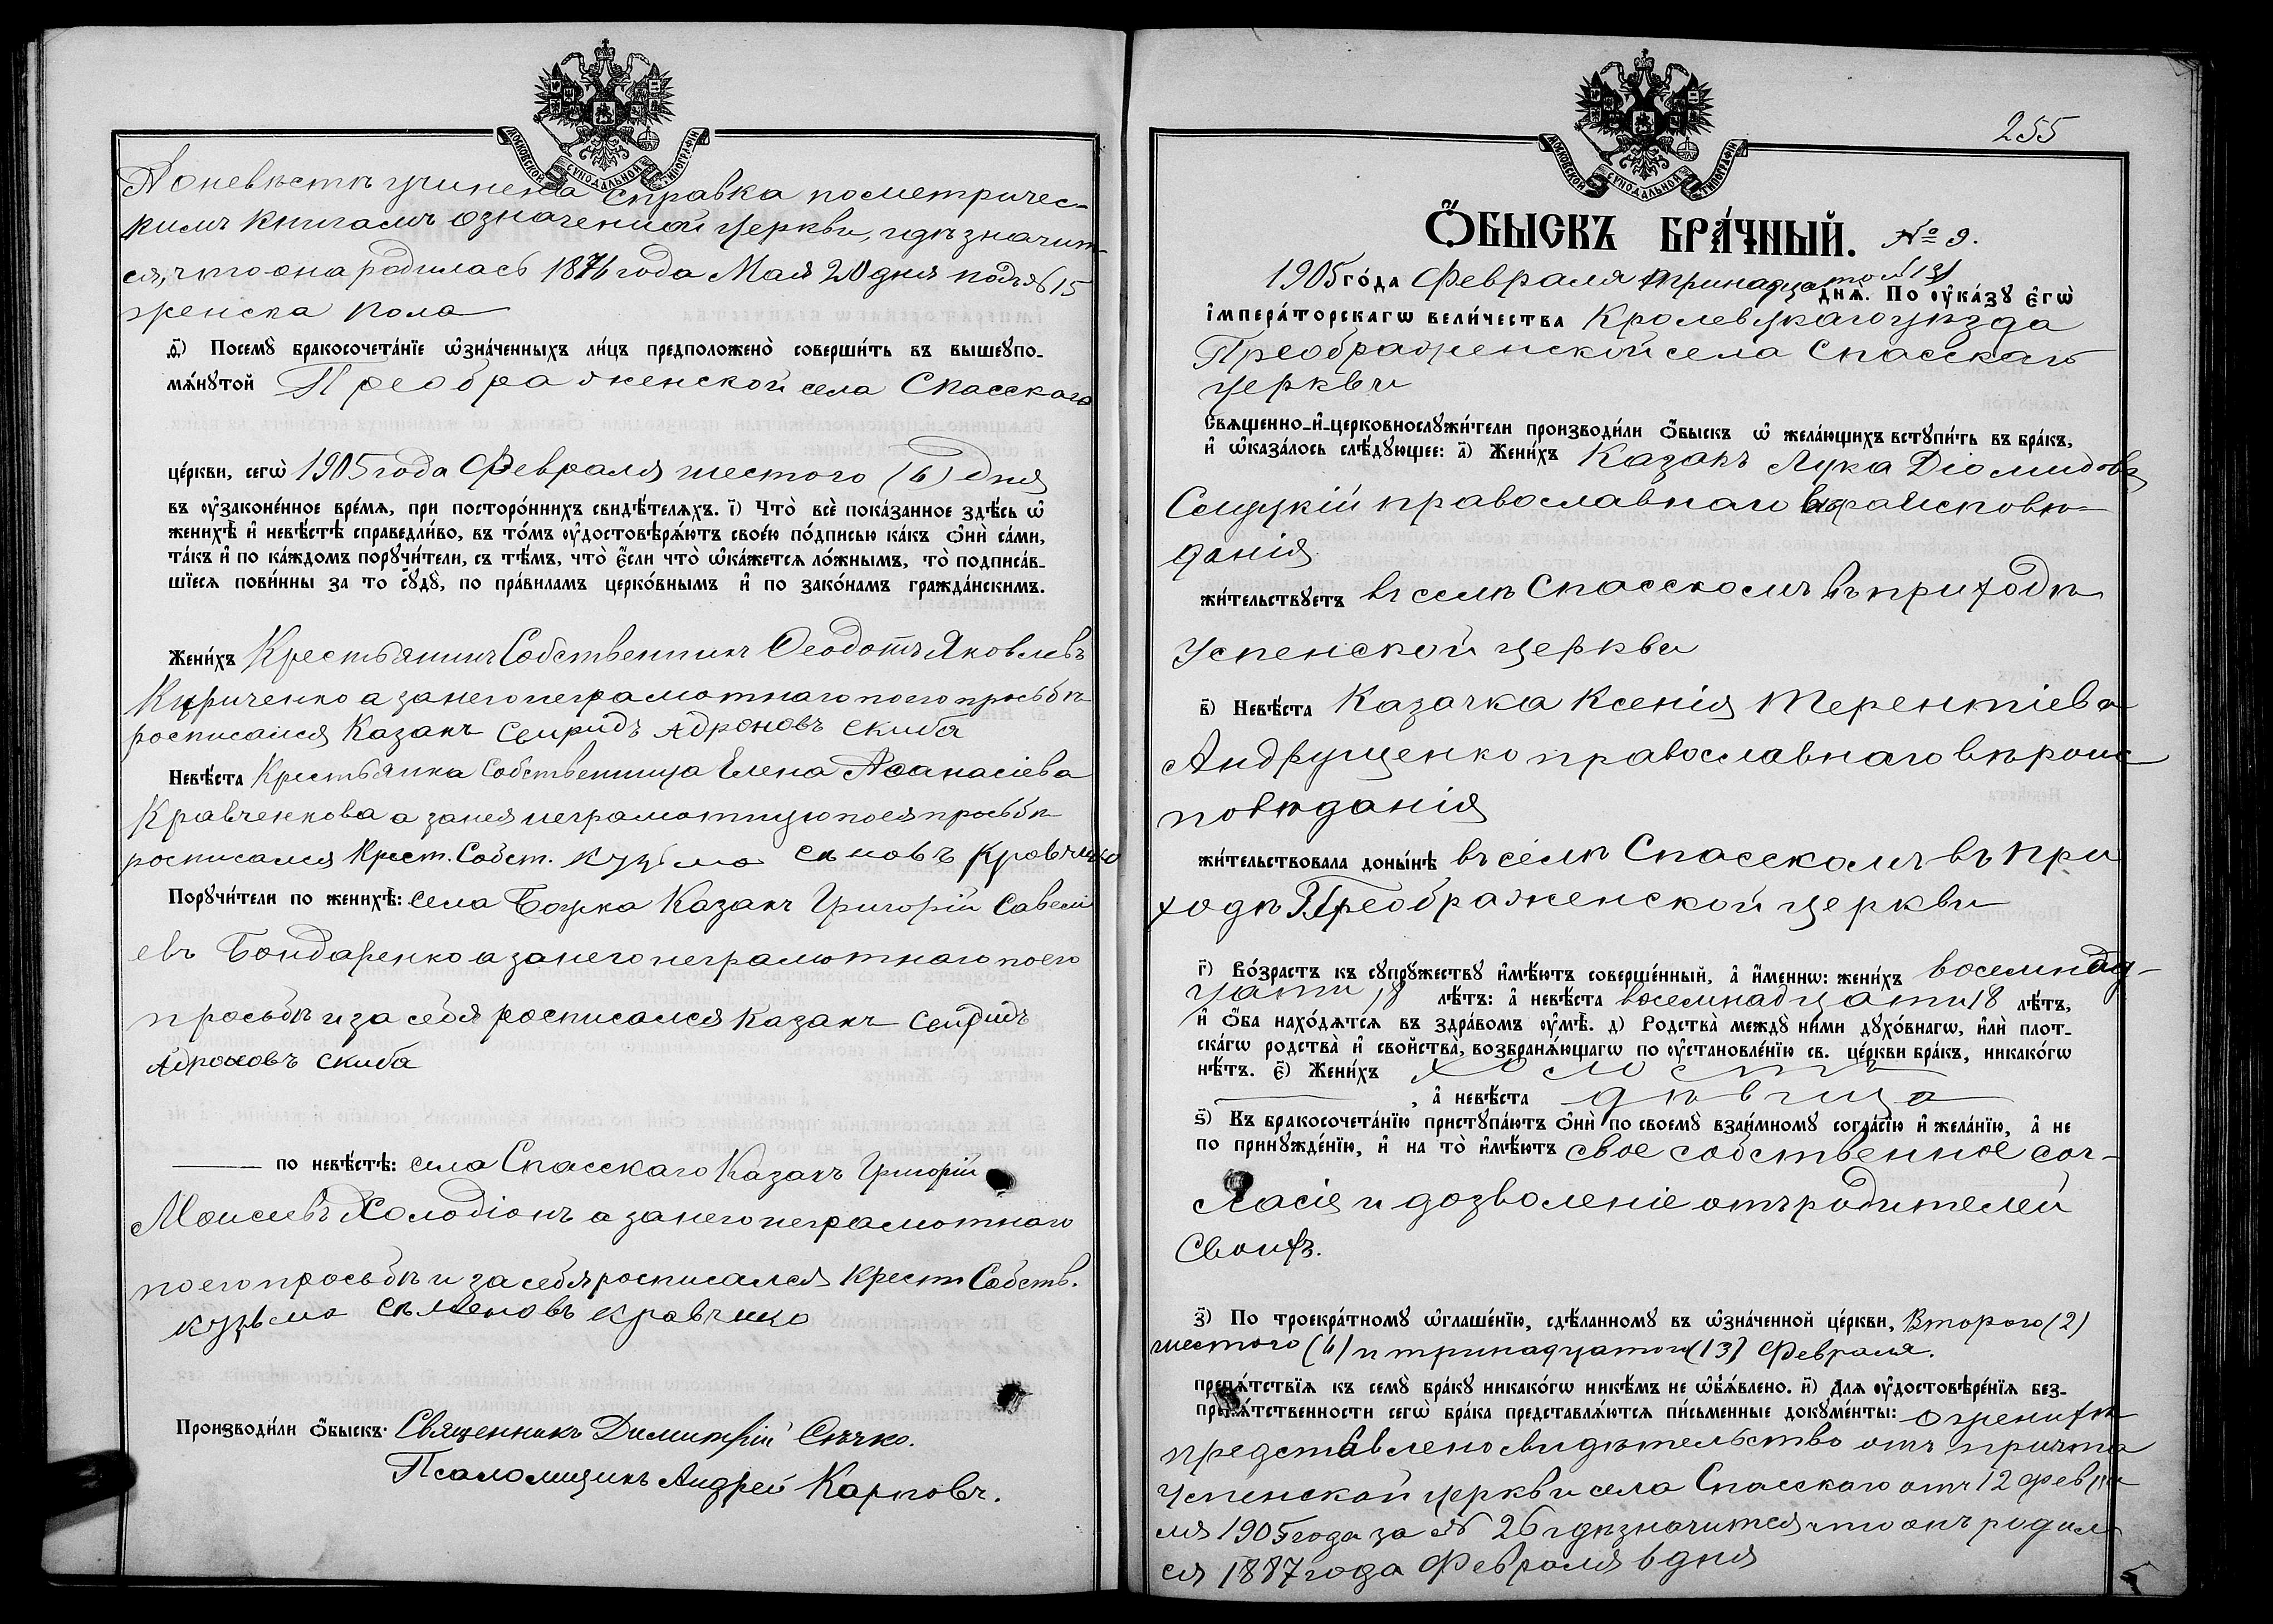 МОСКОВСКОЙ СУНОДАЛЬНОЙ ТИПОГРАФІИ
А о невѣстѣ учинена справка по метричес-
кимъ книгамъ означенной церкви, гдѣ значит-
ся, что она родилась 1876 года Мая 20 дня подъ № 15
женска пола
ѳ҃) Посемꙋ̀ бракосочета́нїе ѡ҆зна́ченныхъ ли́цъ предположено̀ соверши́ть въ вышеꙋпо-
мѧ́нꙋтой Преображенской села Спасскаго
це́ркви, сегѡ̀ 1905 года Февраля шестого (6) дня
въ ᲂу҆зако́ненное вре́мѧ, при посторо́ннихъ свидѣ́телѧхъ. і҃) Что̀ всѐ пока́занное здѣ́сь ѡ҆
женихѣ̀ и҆ невѣ́стѣ справедли́во, въ то́мъ ᲂу҆достовѣрѧ́ютъ свое́ю по́дписью ка́къ ѻ҆нѝ са́ми,
та́къ и҆ по ка́ждомъ порꙋчи́тели, съ тѣ́мъ, что̀ є҆́сли что̀ ѡ҆ка́жется ло́жнымъ, то̀ подписа́в-
шїеся пови́нны за то сꙋдꙋ̀, по пра́виламъ церко́внымъ и҆ по зако́намъ гражда́нскимъ.
Жени́хъ Крестьянинъ Собственникъ Ѳеодотъ Яковлевъ
Кириченко а за него неграмотнаго по его просьбѣ
росписался Казакъ Свиридъ Адроновъ Скиба
Невѣ́ста Крестьянка Собственница Елена Аѳанасіева
Кравченкова а за нея неграмотную по ея просьбѣ
росписался Крест. Собст. Кузьма Кравченко
Порꙋчи́тели по женихѣ̀: села Казакъ Григорій Савелі
евъ Бондаренко а за него неграмотнаго по его
просьбѣ и за себя росписался Казакъ Свиридъ
Адроновъ Скиба
по невѣ́стѣ: села Спасскаго Казакъ Григорій
Моисеевъ Холодіонъ а за него неграмотнаго
по его просьбѣ и за себя росписался Крест Собств.
Кузьма Сѣменовъ Кравченко
Производи́ли ѻ҆́быскъ: Священникъ Димитрій Сѣчко.
Псаломщикъ Андрей Карповъ.
МОСКОВСКОЙ СУНОДАЛЬНОЙ ТИПОГРАФІИ
255
Ѻ҆́БЫСКЪ БРА́ЧНЫЙ. № 9.
1905 го́да Февраля тринадцатого (13)
днѧ̀. По ᲂу҆ка́зꙋ є҆гѡ̀
і҆мпера́торскагѡ вели́чества Кролевецкаго уѣзда
Преображенской села Спасскаго
церкви
Свѧщенно-и҆-церковнослꙋжи́тели производи́ли ѻ҆́быскъ ѡ҆ жела́ющихъ вступи́ть въ бра́къ,
и҆ ѡ҆каза́лось слѣ́дꙋющее: а҃) Жени́хъ Казакъ Лука Діомидовъ
православнаго вѣроисповѣ-
данія
жи́тельствꙋетъ въ селѣ Спасскомъ въ приходѣ
Успенской церкви
в҃) Невѣ́ста Казачка Ксенія Терентіева
Андрущенко православнаго вѣроис
повѣданія
жи́тельствовала доны́нѣ въ селѣ Спасскомъ въ при
ходѣ Преображенской церкви
г҃) Во́зрастъ къ сꙋпрꙋ́жествꙋ и҆мѣ́ютъ соверше́нный, а҆ и҆́меннѡ: жени́хъ восемнад-
цати 18 лѣ́тъ: а҆ невѣ́ста восемнадцати 18 лѣ́тъ,
и҆ ѻ҆́ба нахо́дѧтся въ здра́вомъ ᲂу҆мѣ̀. д҃) Родства̀ междꙋ̀ ни́ми дꙋхо́внагѡ, и҆лѝ плот-
ска́гѡ родства̀ и҆ свойства̀, возбранѧ́ющагѡ по ᲂу҆становле́нїю св. це́ркви бра́къ, никако́гѡ
нѣ́тъ. є҃) Жени́хъ холостъ
, а҆ невѣ́ста дѣвица
ѕ҃) Къ бракосочета́нїю приступа́ютъ ѻ҆нѝ по своемꙋ̀ взаи́мномꙋ согла́сїю и҆ жела́нїю, а҆ не
по принꙋжде́нїю, и҆ на то̀ и҆мѣ́ютъ свое собственное сог-
ласіе и дозволеніе отъ родителей
своихъ.
з҃) По троекра́тномꙋ ѡ҆глаше́нїю, сдѣ́ланномꙋ въ ѡ҆зна́ченной це́ркви, Второго (2)
шестого (6) и тринадцатого (13) Февраля.
препѧ́тствїя къ семꙋ̀ бра́кꙋ никако́гѡ никѣ́мъ не ѡ҆бъѧ́влено. и҃) Длѧ ᲂу҆достовѣре́нїя без-
препѧ́тственности сегѡ̀ бра́ка представлѧ́ются пи́сьменные докꙋме́нты: о женихѣ
представлено свидѣтельство отъ причта
Успенской церкви села Спасскаго отъ 12 февра
ля 1905 года за № 26 гдѣ значится что онъ родил-
ся 1887 года Февраля 6 дня